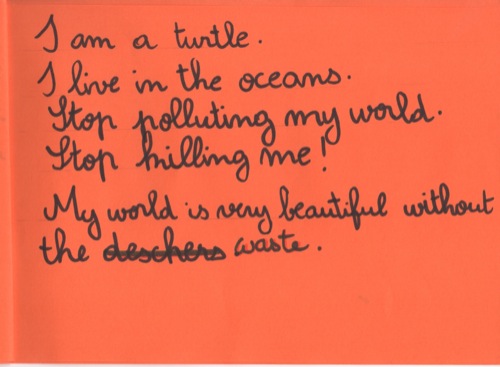 I am a turtle.
I live in the oceans.
Stop polluting my world.
Stop killing me!
My world is very beautiful without
the deschers waste.